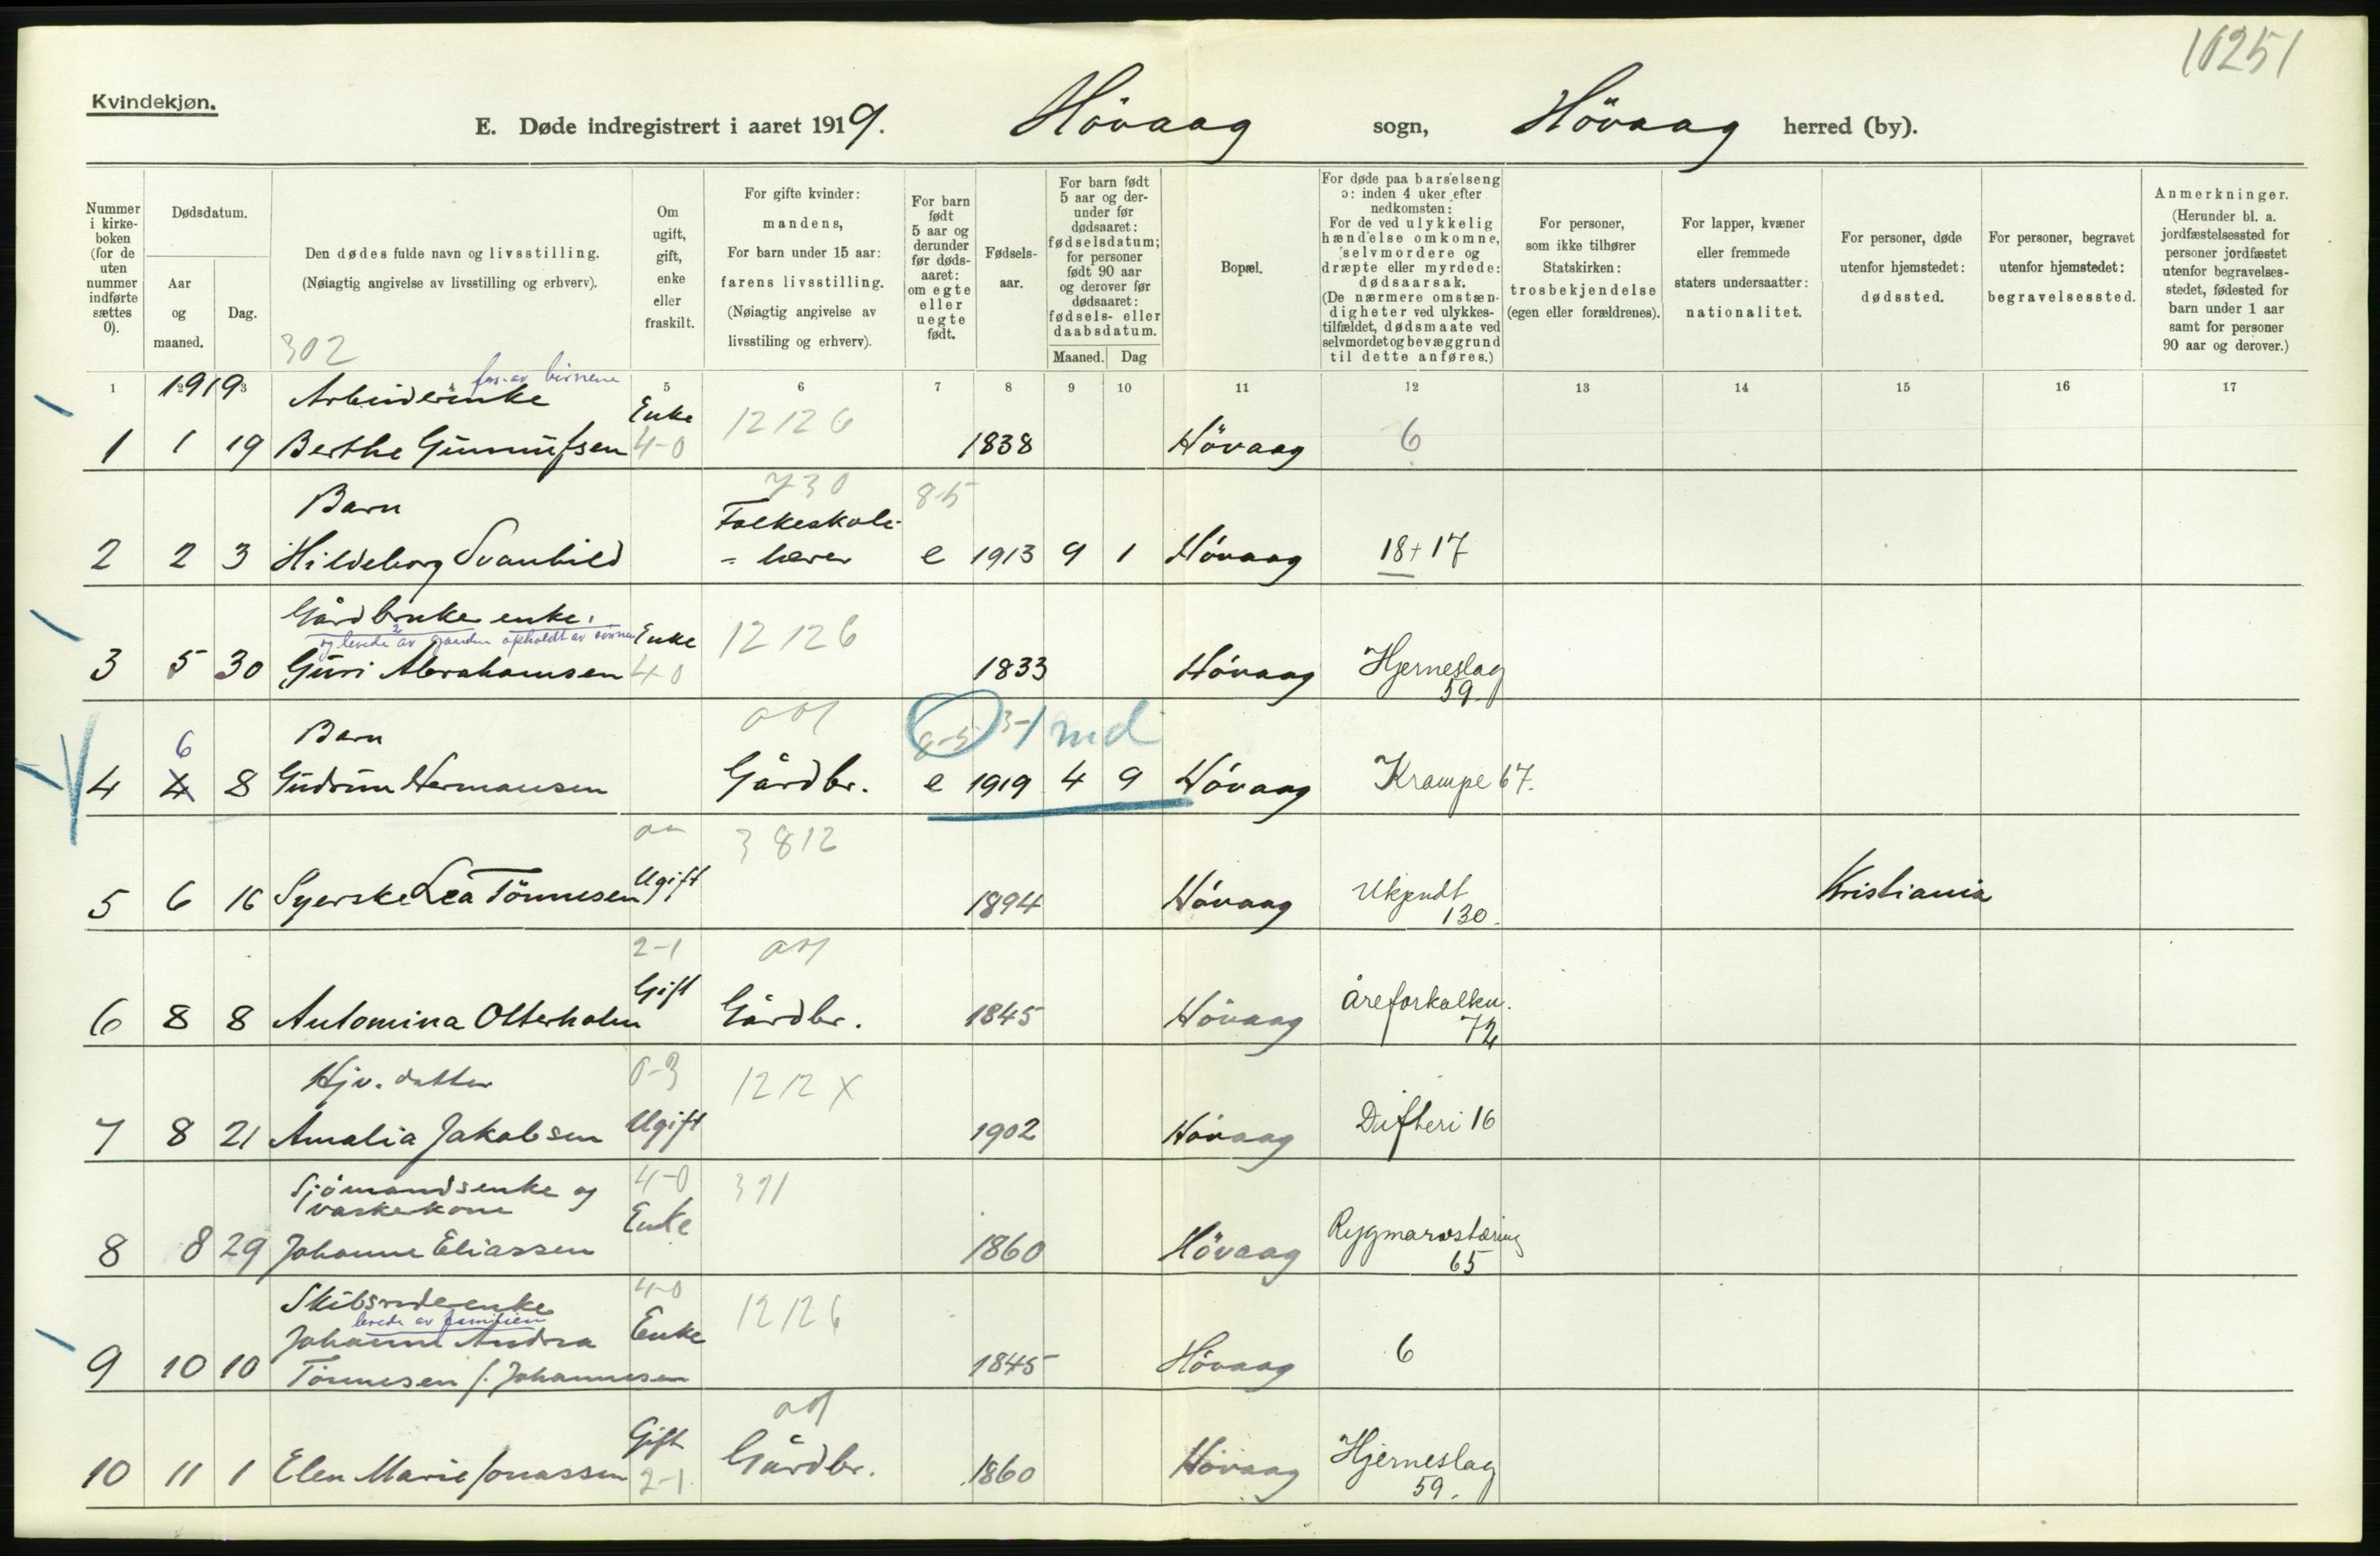 10251
Kvindekjøn.
E. Døde indregistrert i aaret 1919. Hövaag sogn, Hövaag herred (by).
Nummer i kirkeboken (for de uten nummer indførte sættes 0).
Dødsdatum.
Aar og maaned.
Dag.
Den dødes fulde navn og livsstilling.
(Nøiagtig angivelse av livsstilling og erhverv).
302
Om ugift, gift, enke eller fraskilt.
For gifte kvinder: mandens,
For barn under 15 aar: farens livsstilling.
(Nøiagtig angivelse av livsstiling og erhverv).
For barn født 5 aar og derunder før dødsaaret: om egte eller uegte født.
Fødselsaar.
For barn født 5 aar og derunder før dødsaaret: fødselsdatum; for personer født 90 aar og derover før dødsaaret: fødsels- eller daabsdatum.
Maaned. Dag
Bopæl.
For døde paa barselseng ɔ: inden 4 uker efter nedkomsten:
For de ved ulykkelig hændelse omkomne, selvmordere og dræpte eller myrdede: dødsaarsak.
(De nærmere omstændigheter ved ulykkestilfældet, dødsmaate ved selvmordet og bevæggrund til dette anføres.)
For personer, som ikke tilhører Statskirken: trosbekjendelse (egen eller forældrenes).
For lapper, kvæner eller fremmede staters undersaatter: nationalitet.
For personer, døde utenfor hjemstedet: dødssted.
For personer, begravet utenfor hjemstedet: begravelsessted.
Anmerkninger.
(Herunder bl. a. jordfæstelsessted for personer jordfæstet utenfor begravelsesstedet, fødested for barn under 1 aar samt for personer 90 aar og derover.)
1 2 3 4 5 6 7 8 9 10 11 12 13 14 15 16 17
1919 Arbeiderenke Enke 12126
1 1 19 Berthe Gunnufsen 4-0 1838 Hövaag 6
Barn 730 8-5
Folkeskole-
2 2 3 Hildeborg Svanhild = lærer e 1913 9 1 Hövaag 18+17
Gårdbruke enke.
og levede av gaarden opholdt av sønnen Enke 12126
3 5 30 Guri Abrahamsen 4-0 1833 Hövaag Hjerneslag
59.
6 Barn 8-5 3-1 md
4 4 8 Gudrun Hermansen Gårdbr. e 1919 4 9 Hövaag Krampe 67.
3812
5 6 16 Syerske Lea Tönnesen Ugift 1894 Hövaag Ukjendt Kristiania
130.
2-1
6 8 8 Antomina Otterholm Gift Gårdbr. 1845 Hövaag Åreforkalkn.
72
Hjv. datter 0-3 1212X
7 8 21 Amalia Jakobsen Ugift 1902 Hövaag Difteri 16
Sjömandsenke og 4-0 391
vaskekone Enke
8 8 29 Johanne Eliassen 1860 Hövaag Rygmarvstæring
65
Skibsrederenke 4-0 12126
levede av familien
Johanne Andrea Enke
9 10 10 Tönnesen f. Johannesen 1845 Hövaag 6
Gift
10 11 1 Elen Marie Jonassen 2-1 Gårdbr. 1860 Hövaag Hjerneslag
59.